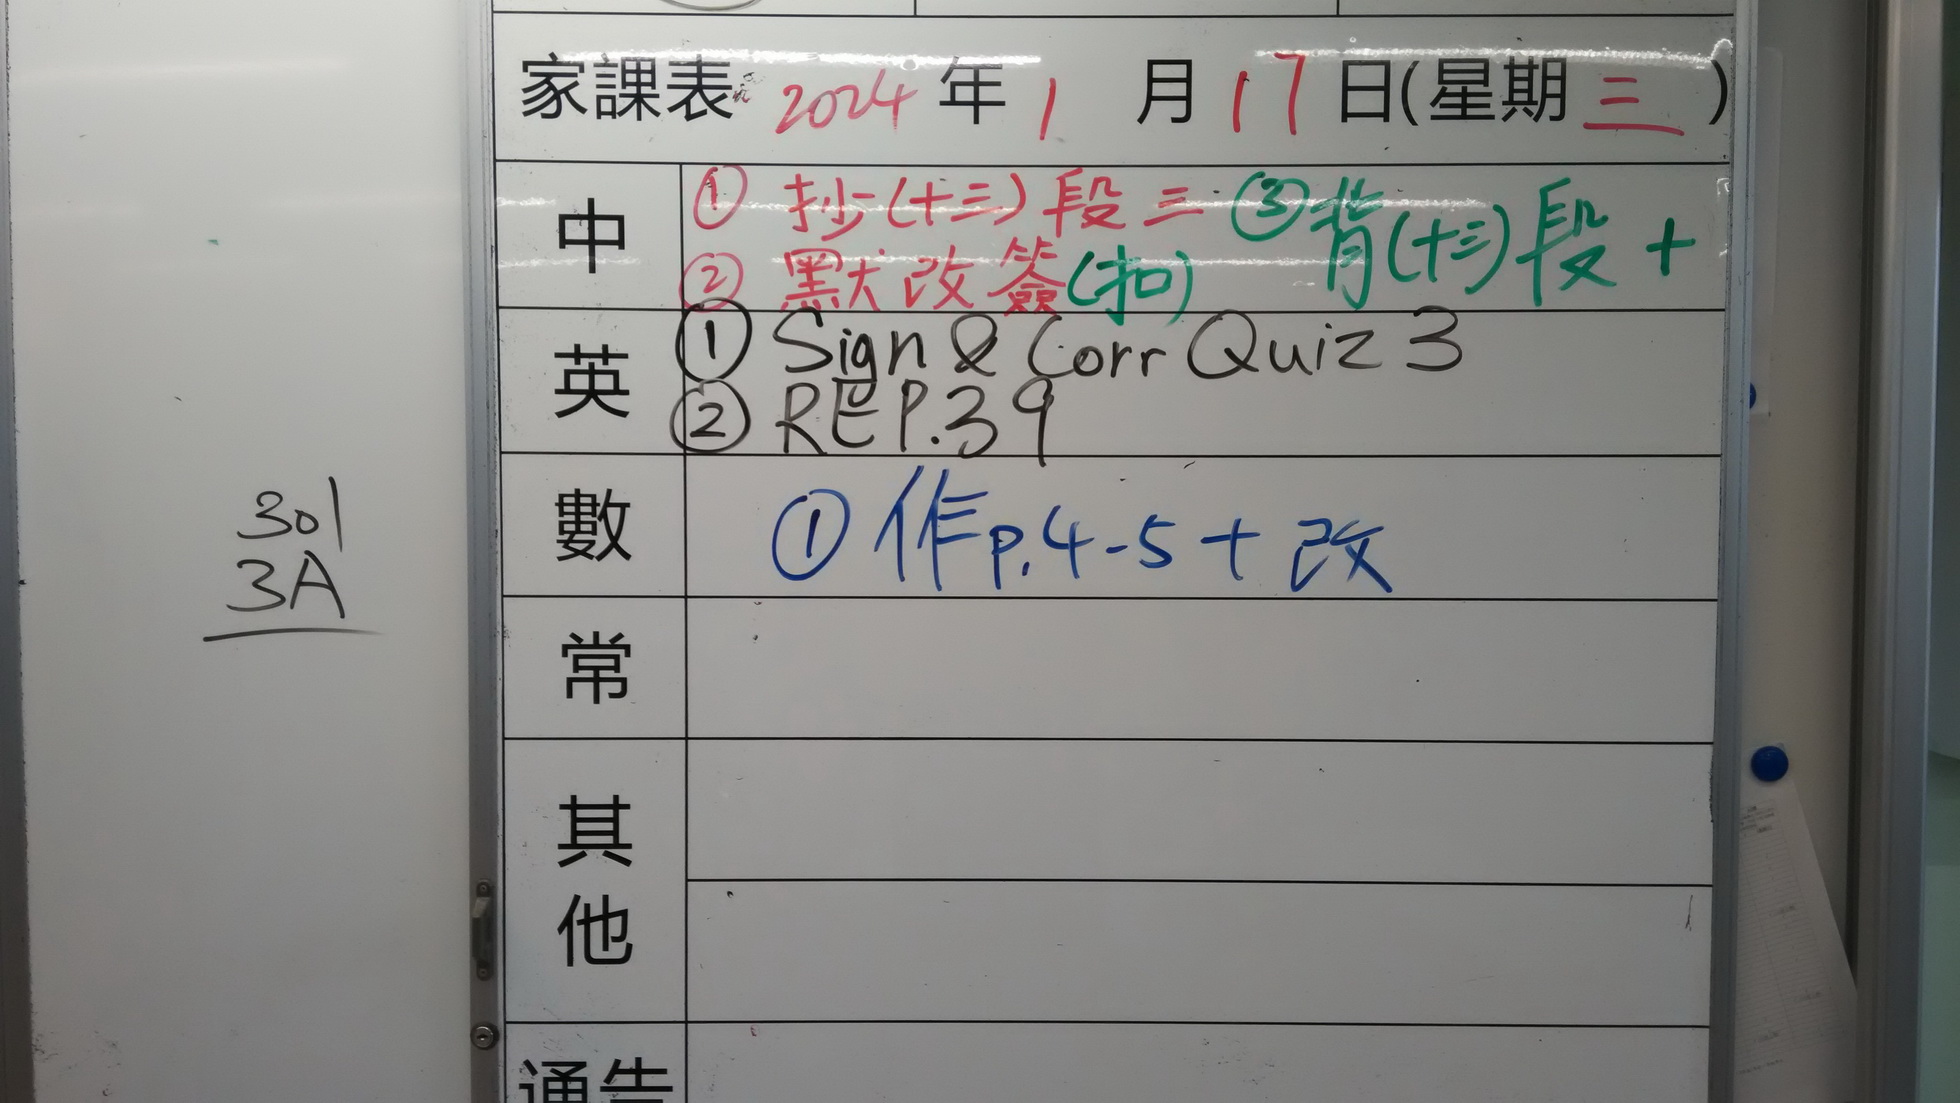 家課表 2024 年 1 月 17 日(星期 三 )
中
① 抄(十三)段三 ③背(十三)段十
② 默改簽(扣)
英
① Sign & Corr Quiz 3
② RE P.39
數
① 作p.4-5 + 改
常
其他
通告
301
3A